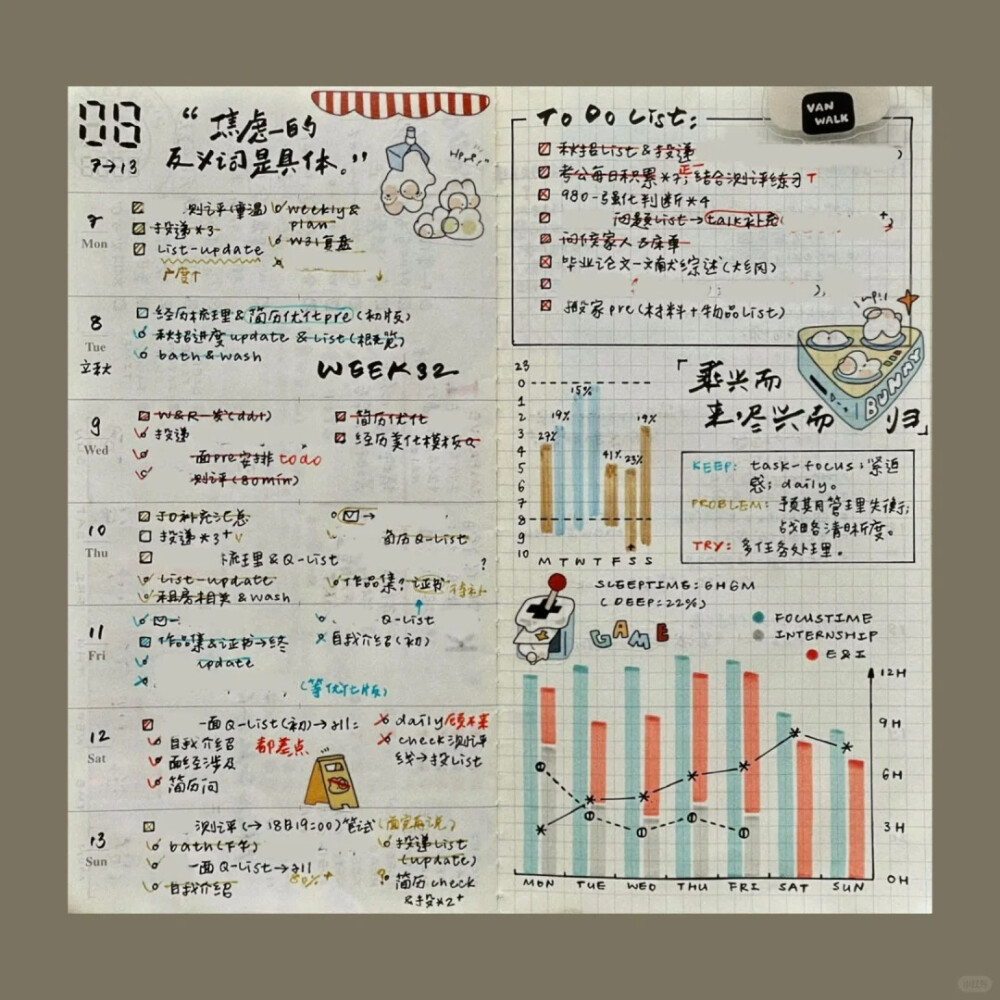 08
7→13
“焦虑的
反义词是具体。”
Hey!!
7
Mon
测评(重温)
投递*3
List-update
产度↑
weekly&
plan
W31复盘
8
Tue
立秋
经历梳理&简历优化pre(初版)
秋招进度update & list(概览)
bath & wash
WEEK32
9
Wed
投递
一面pre安排 todo
测评(80min)
简历优化
经历美化模板
10
Thu
JD补充汇总
投递*3+
梳理&Q-List
?
List-update
租房相关&wash
→
简历Q-List
作品集?证书 待补
11
Fri
作品集&证书→终
update
Q-List
自我介绍(初)
(等优化版)
12
Sat
一面Q-List(初)→
自我介绍
面经涉及
简历问
都差点
daily 顾不来
check测评
线→投List
13
Sun
测评(→18日19:00)笔试(面完再说)
bath(下午)
一面Q-List→
80%+
自我介绍
投递List
(update)
? 简历check
&投*2+
VAN
WALK
To Do List:
秋招List & 投递
考公每日积累*7;结合测评练习
980-强化判断*4
问题List→talk补充
问候家人&床单
毕业论文-文献综述(大纲)
搬家pre(材料+物品List)
1up!!
BUNNY
「乘兴而
来,尽兴而归」
KEEP: task-focus;紧迫
感;daily。
PROBLEM: 预期管理失衡;
战略清晰度。
TRY: 多任务处理。
23
0
1
2
3
4
5
6
7
8
9
10
27%
19%
15%
41%
23%
19%
M T W T F S S
SLEEPTIME: 6H6M
(DEEP:22%)
GAME
FOCUSTIME
INTERNSHIP
E&I
12H
9H
6H
3H
0H
MON TUE WED THU FRI SAT SUN